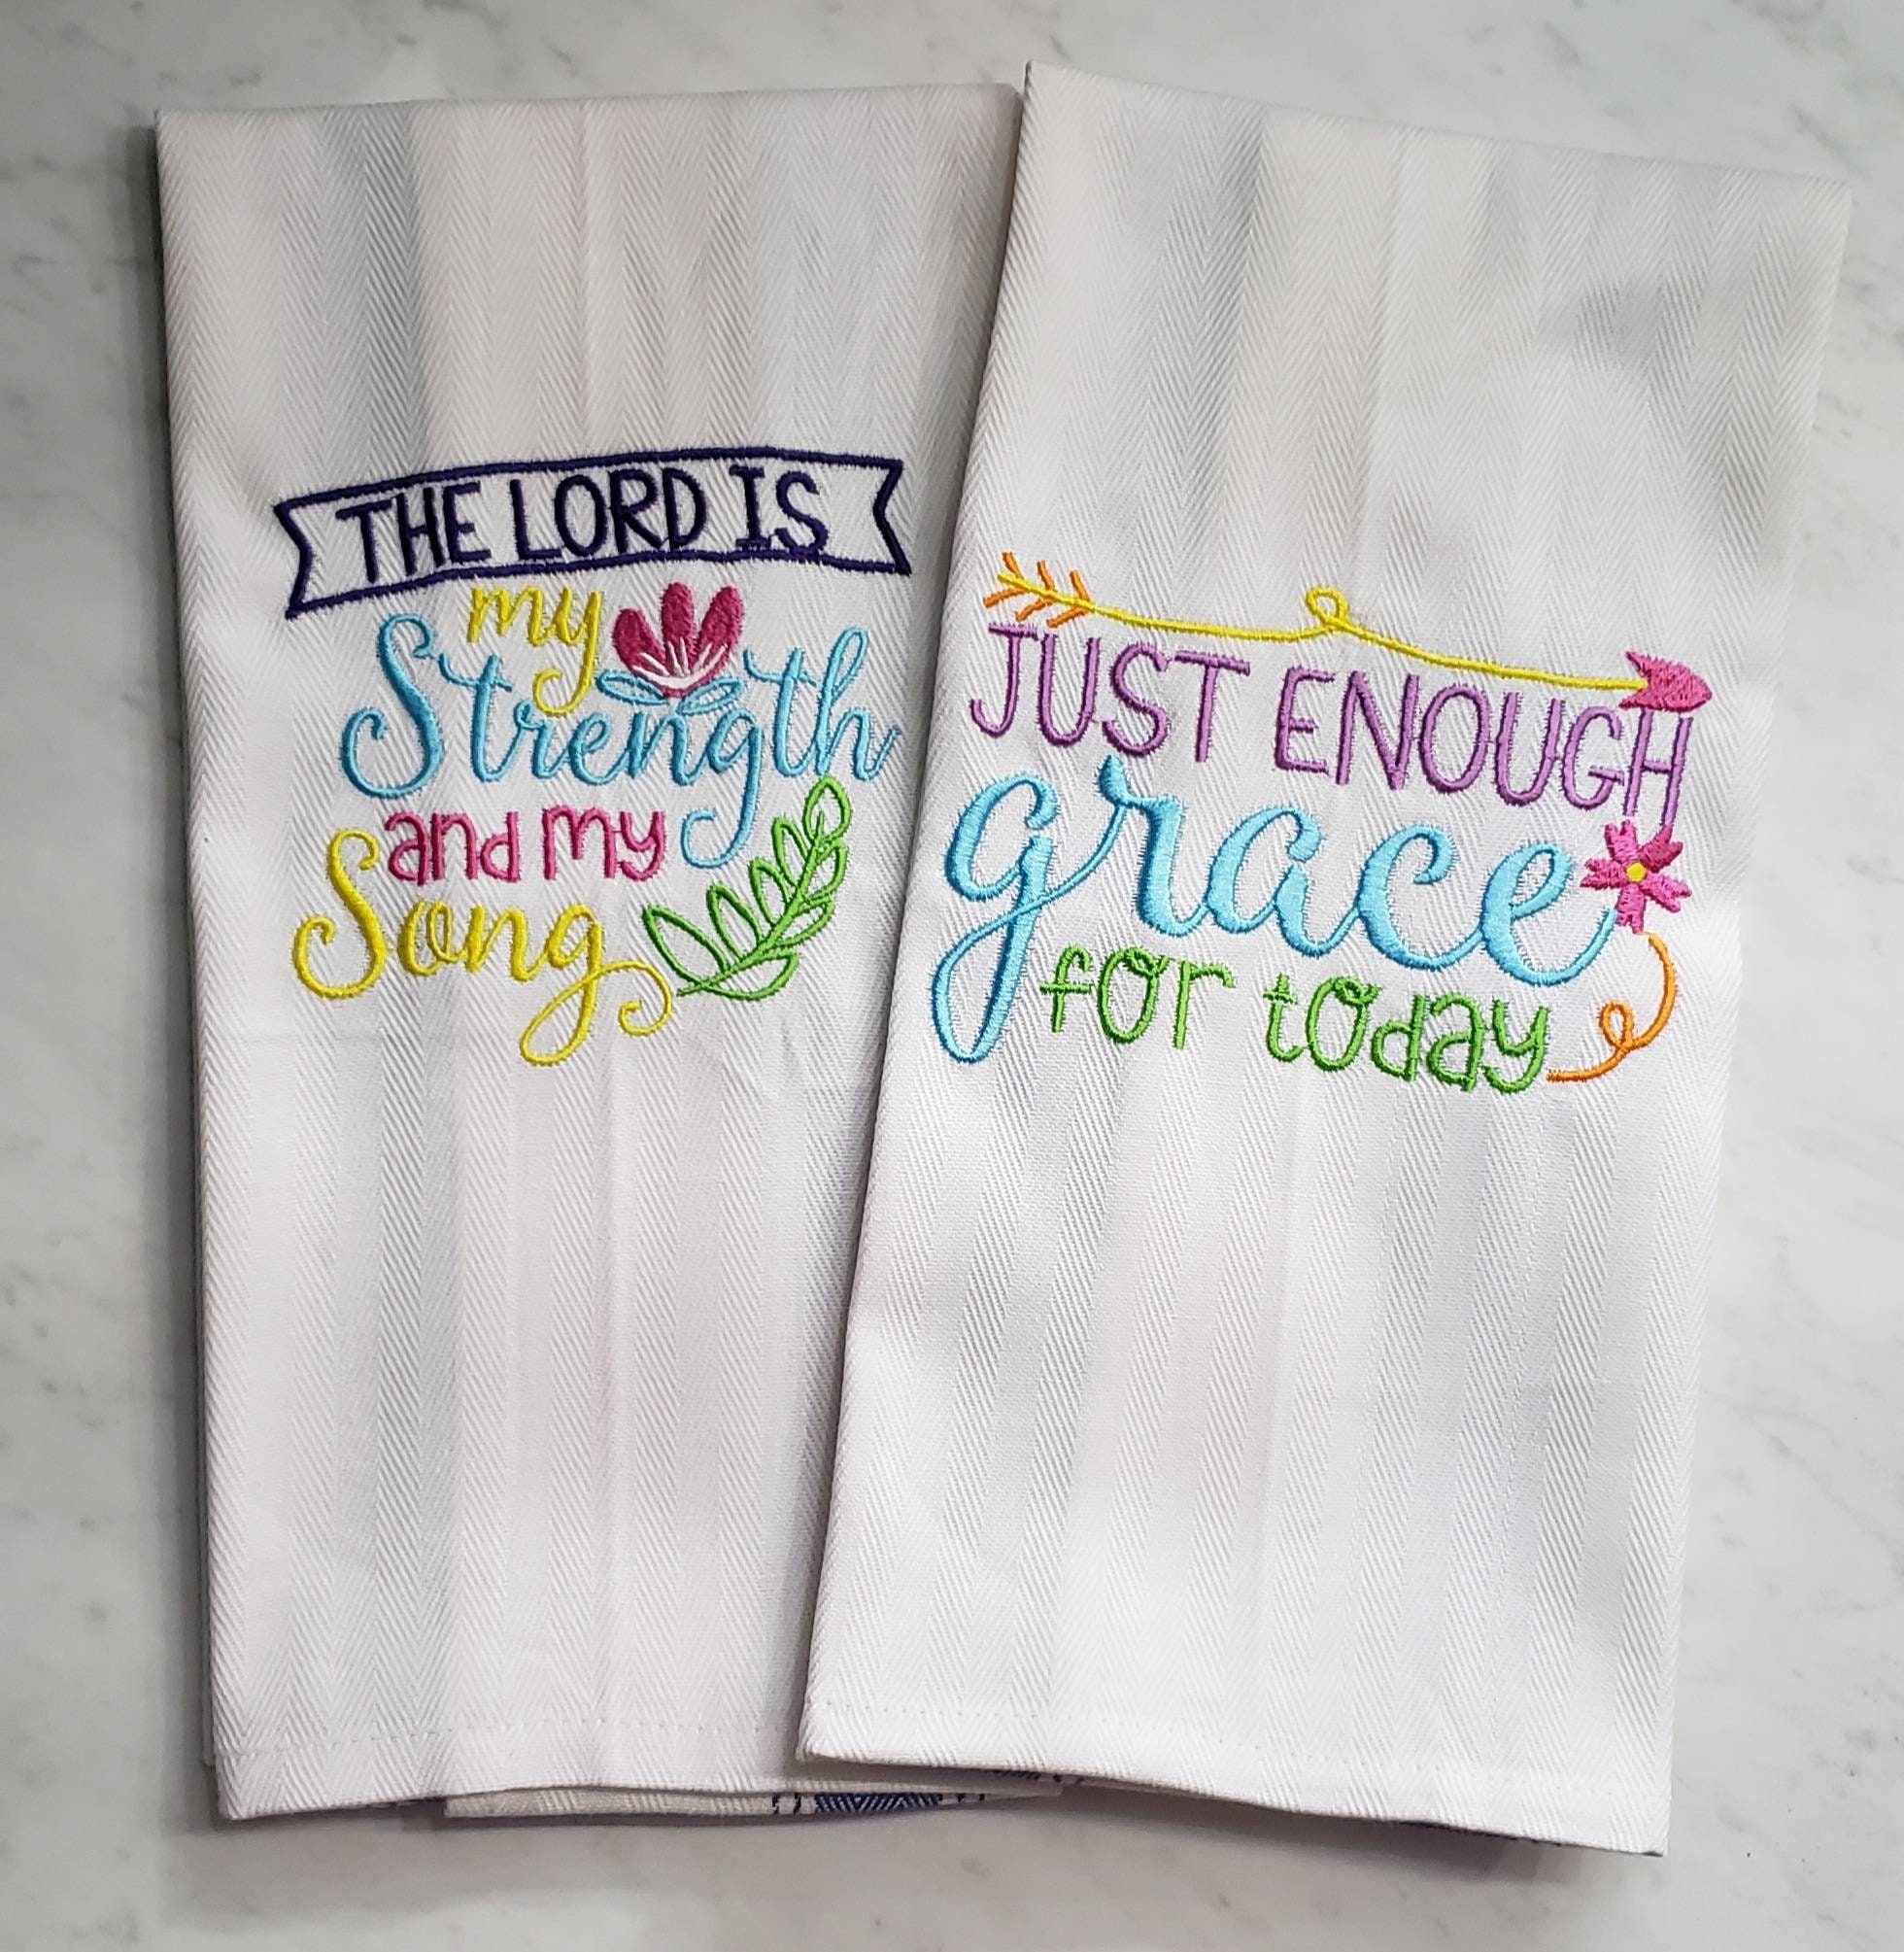 THE LORD IS
my
Strength
and my
Song
JUST ENOUGH
grace
for today